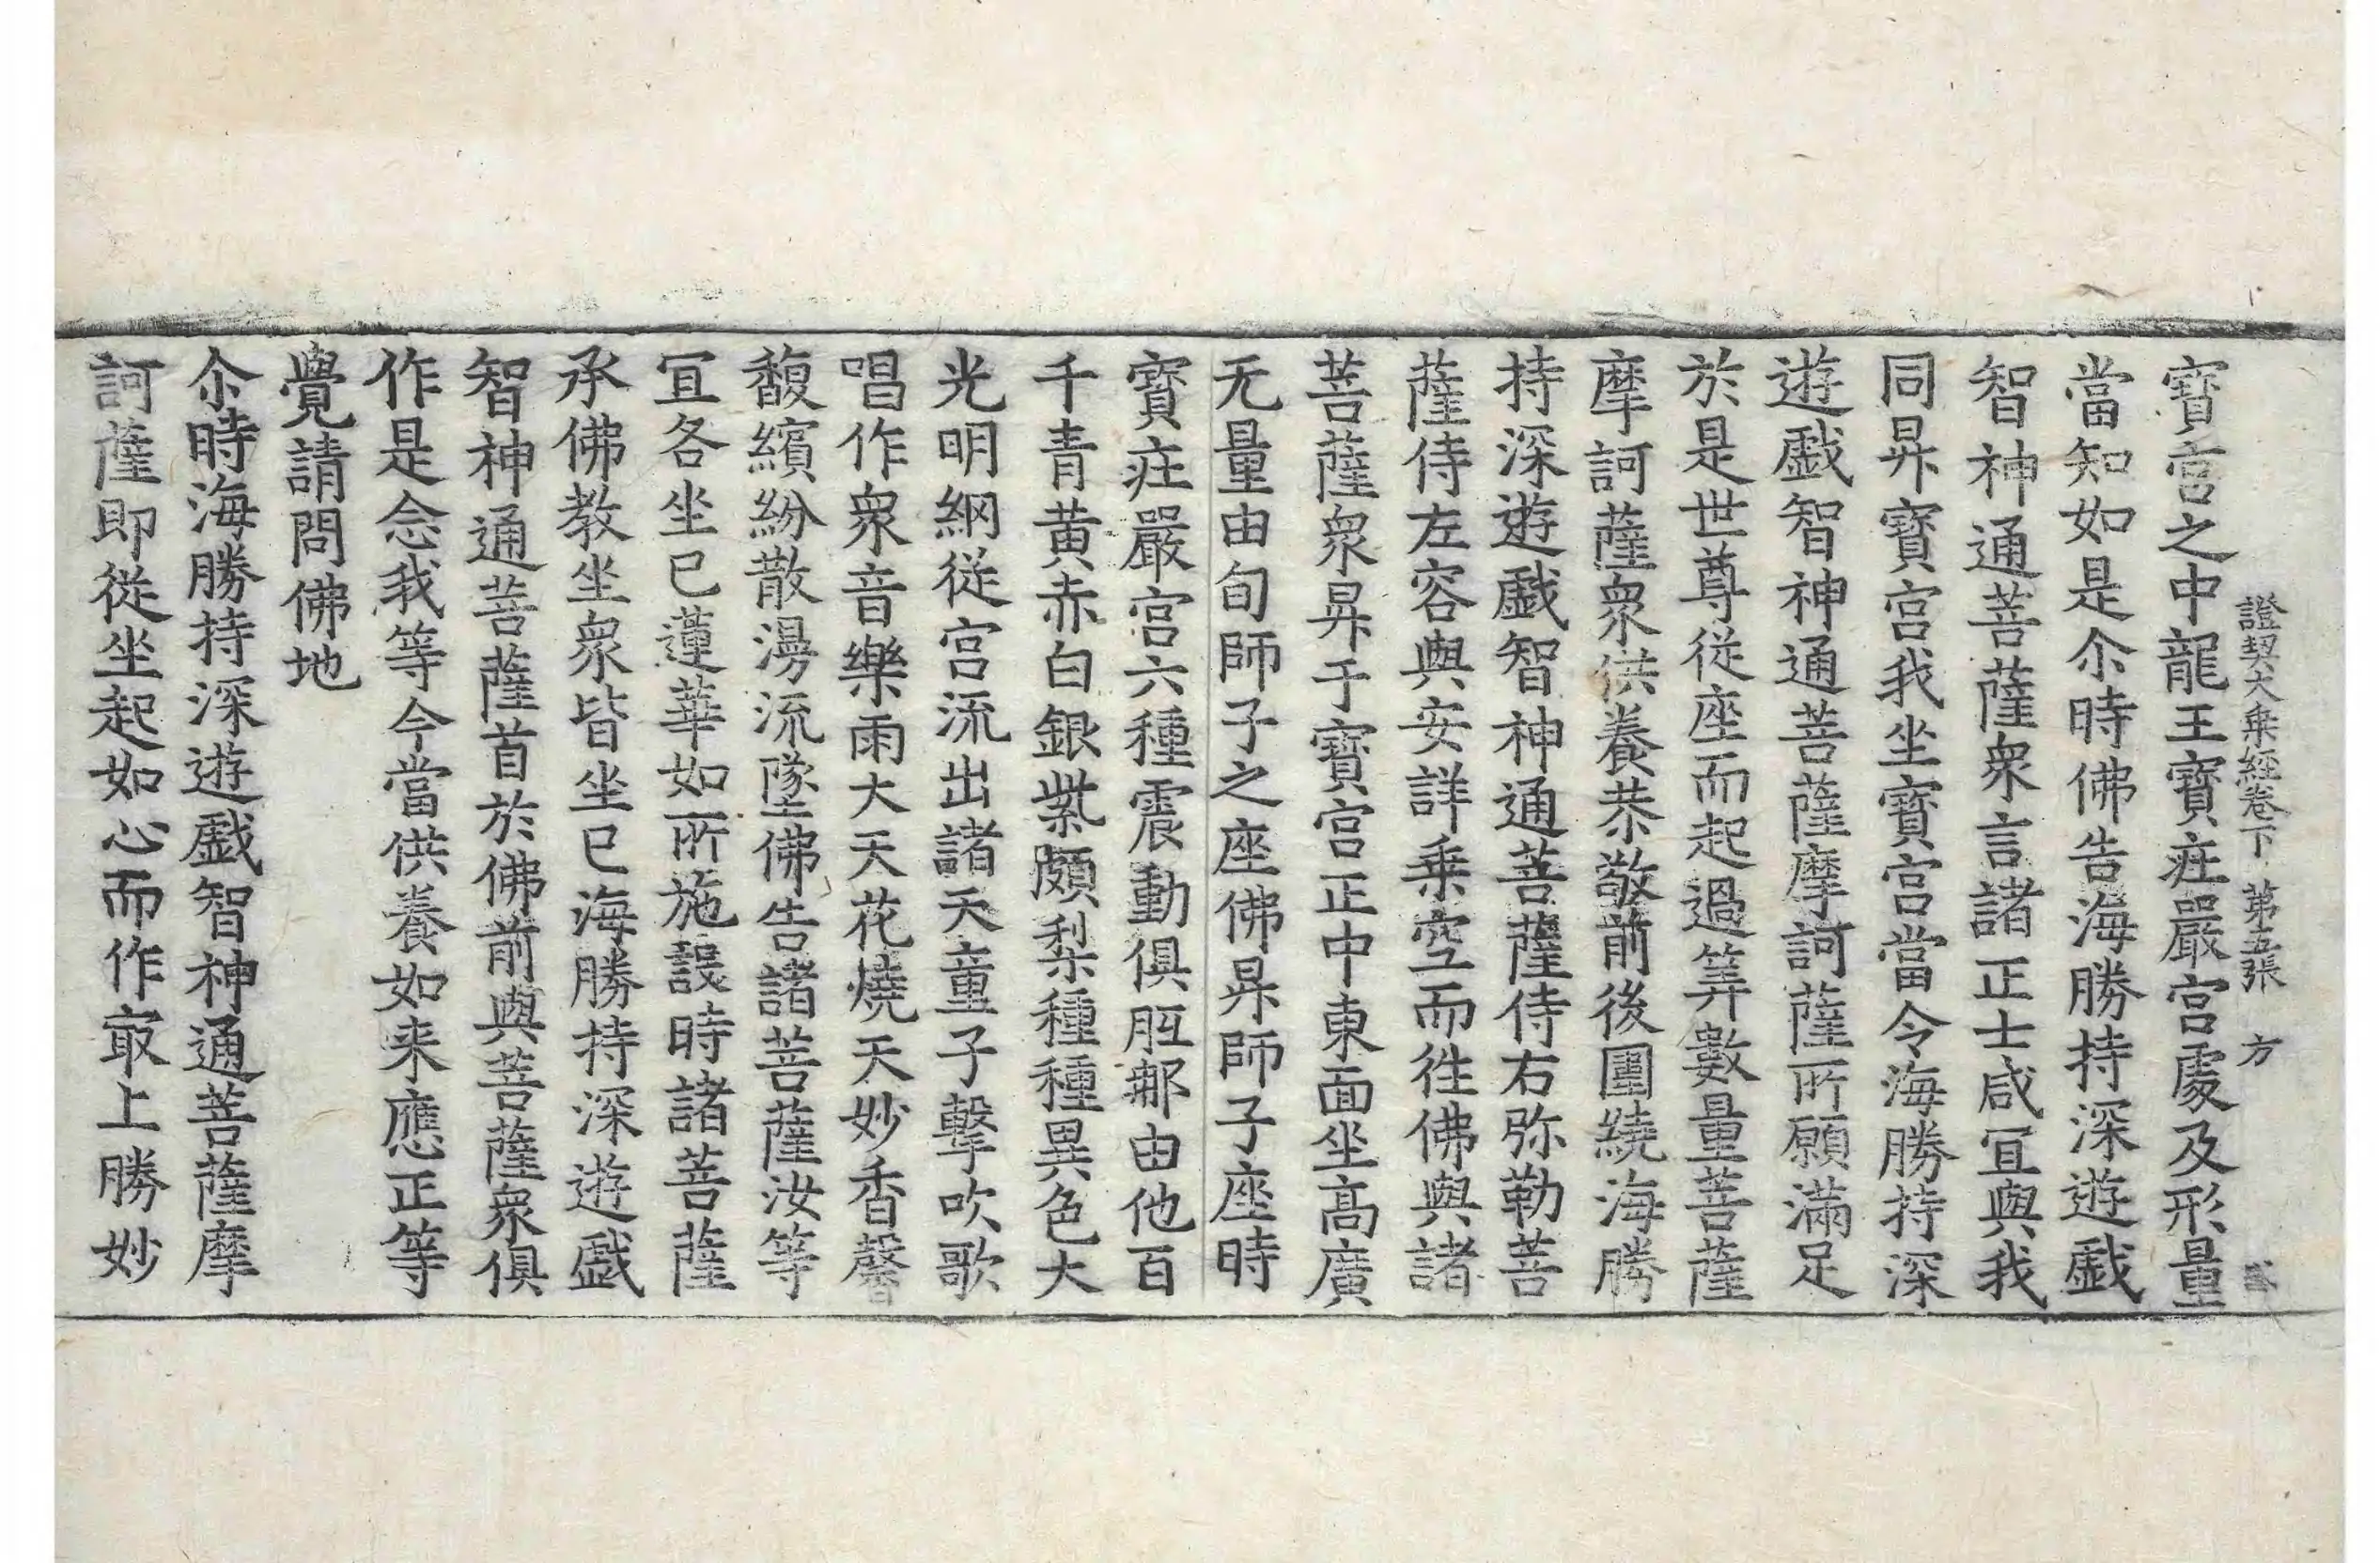 證契大乗經卷下 第五張 方
寳宫之中龍王寳莊嚴宫處及形量
當知如是尒時佛告海勝持深遊戯
智神通菩薩衆言諸正士咸冝與我
同昇寳宫我坐寳宫當令海勝持深
遊戯智神通菩薩摩訶薩所願滿足
於是世尊従座而起過筭數量菩薩
摩訶薩衆供養恭敬前後圍繞海勝
持深遊戯智神通菩薩侍右弥勒菩
薩侍左容與安詳乗空而徃佛與諸
菩薩衆昇于寳宫正中東面坐高廣
无量由旬師子之座佛昇師子座時
寳莊嚴宫六種震動俱胝那由他百
千青黄赤白銀紫頗梨種種異色大
光明網従宫流出諸天童子擊吹歌
唱作衆音樂雨大天花燒天妙香馨
馥繽紛散漫流墜佛告諸菩薩汝等
冝各坐已蓮華如所施設時諸菩薩
承佛教坐衆皆坐已海勝持深遊戯
智神通菩薩首於佛前與菩薩衆俱
作是念我等今當供養如来應正等
覺請問佛地
尒時海勝持深遊戯智神通菩薩摩
訶薩即從坐起如心而作㝡上勝妙